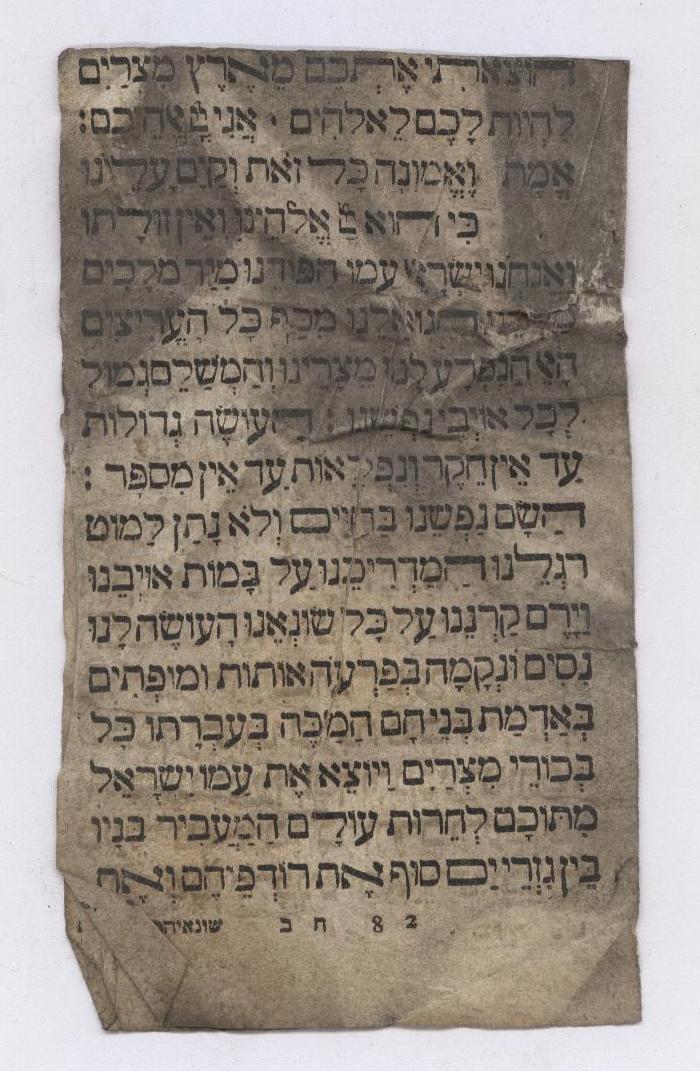 הוצאתי אתכם מארץ מצרים
להיות לכם לאלהים · אני אלהיכם:
אמת ואמונה כל זאת וקים עלינו
כי הוא אלהינו ואין זולתו
ואנחנו ישראל עמו הפודנו מיד מלכים
הגואלנו מכף כל העריצים
האל הנפרע לנו מצרינו והמשלם גמול
לכל אויבי נפשנו: העושה גדולות
עד אין חקר ונפלאות עד אין מספר:
השם נפשנו בחיים ולא נתן למוט
רגלנו המדריכנו על במות אויבנו
וירם קרננו על כל שונאנו העושה לנו
נסים ונקמה בפרעה אותות ומופתים
באדמת בני חם המכה בעברתו כל
בכורי מצרים ויוצא את עמו ישראל
מתוכם לחרות עולם המעביר בניו
בין גזרי ים סוף את רודפיהם ואת
82 ח ב שונאיהם